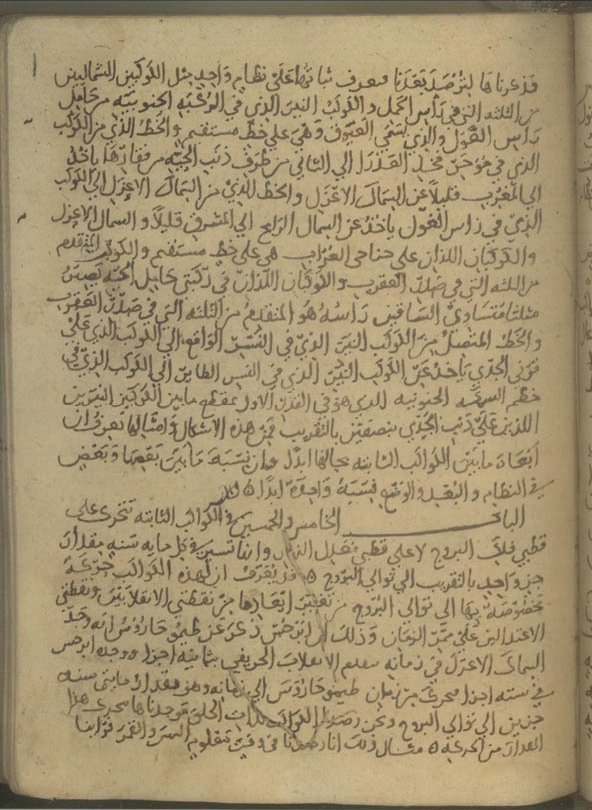 فذكرناها لترصد بعدنا فيعرف ثباتها على نظام واحد مثل الكوكبين الشماليين
من الثلثه التي في راس الحمل والكوكب النير الذي في الركبه الجنوبيه من حامل
راس الغول والذي يسمى العيوق وهي على خط مستقيم والخط الذي من الكوكب
الذي في موخر فخذ العذرا الى الثاني من طرف ذنب الحيه من فقارها ياخذ
الى المغرب قليلا عن السماك الاعزل والخط الذي من السماك الاعزل الى الكوكب
الذي في راس الغول ياخذ عن السماك الرامح الى المشرق قليلا والسماك الاعزل
والكوكبان اللذان على جناحي الغراب هي على خط مستقيم والكوكب المتقدم
من الثلثه التي في صدر العقرب والكوكبان اللذان في ركبتي حامل الحيه تصير
مثلثا متساوي الساقين راسه هو المتقدم من الثلثه التي في صدر العقرب
والخط المتصل من الكوكب النير الذي في النسر الواقع الى الكوكب الذي على
قرني الجدي ياخذ عن الكوكب النير الذي في النسر الطاير الى الكوكب الذي في
السمكه الجنوبيه الذي هو في القدر الاول يقطع ما بين الكوكبين النيرين
اللذين على ذنب الجدي بنصفين بالتقريب فمن هذه الاشكال وامثالها تعرف ان
ابعاد ما بين الكواكب الثابته بحالها ابدا وان نسبه ما بين بعضها وبعض
في النظام والبعد والوضع نسبه واحده ابدا
الباب الخامس والخمسين في الكواكب الثابته تتحرك على
قطبي فلك البروج لا على قطبي معدل النهار وانها تسير في كل مايه سنه مقدار
جز واحد بالتقريب الى توالي البروج قد يعرف ان لهذه الكواكب حركه
مخصوصه بها الى توالي البروج من تغير ابعادها من نقطتي الانقلابين ونقطتي
الاعتدالين على مر الزمان وذلك ان ابرخس ذكر عن طيموخاروس انه وجد
السماك الاعزل في زمانه يتقدم الانقلاب الخريفي بثمانيه اجزا ووجده ابرخس
في سته اجزا فتحرك من زمان طيموخاروس الى زمانه وهو مقدار مايتي سنه
جزين الى توالي البروج ونحن رصدنا الكواكب بذات الحلق فوجدناها تتحرك هذا
المقدار من الحركه مثال ذلك انا رصدنا في وقت تقويم الشمس والقمر